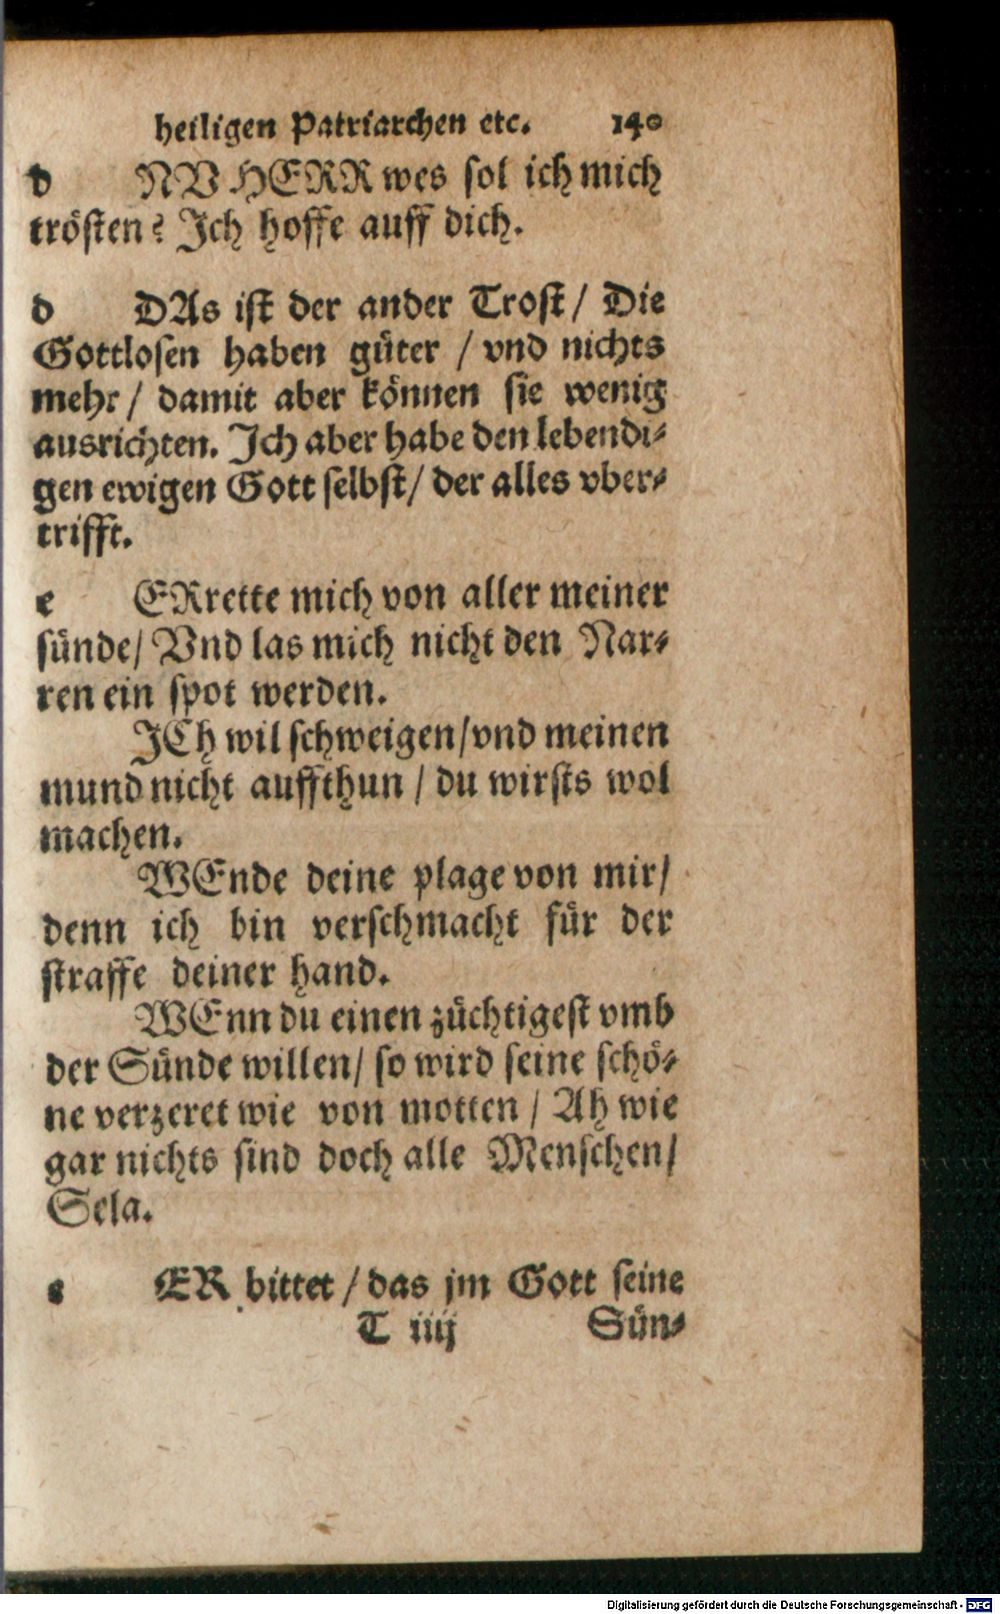 heiligen Patriarchen etc. 140
d NV HERR wes sol ich mich
trösten? Ich hoffe auff dich.
d DAs ist der ander Trost / Die
Gottlosen haben güter / vnd nichts
mehr / damit aber können sie wenig
ausrichten. Ich aber habe den lebendi-
gen ewigen Gott selbst / der alles vber-
trifft.
e ERrette mich von aller meiner
sünde / Vnd las mich nicht den Nar-
ren ein spot werden.
ICh wil schweigen / vnd meinen
mund nicht auffthun / du wirsts wol
machen.
WEnde deine plage von mir /
denn ich bin verschmacht für der
straffe deiner hand.
WEnn du einen züchtigest vmb
der Sünde willen / so wird seine schö-
ne verzeret wie von motten / Ah wie
gar nichts sind doch alle Menschen /
Sela.
e ER bittet / das jm Gott seine
T iiij Sün-
Digitalisierung gefördert durch die Deutsche Forschungsgemeinschaft - DFG